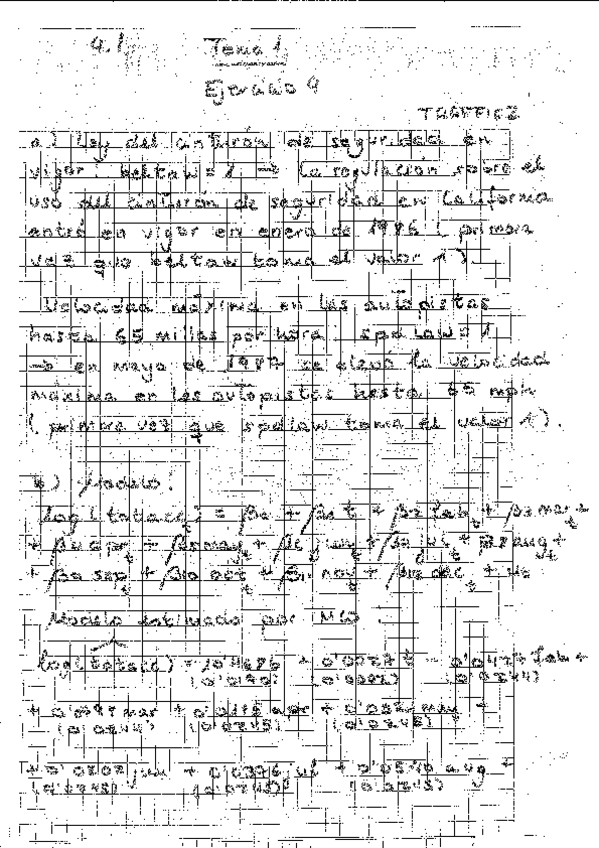 4.1 Tema 1
Ejercicio 9
TRAFFIC2
a) Ley del cinturón de seguridad en
vigor: beltlaw = 1 ⇒ La regulación sobre el
uso del cinturón de seguridad en California
entró en vigor en enero de 1986 (primera
vez que beltlaw toma el valor 1).
Velocidad máxima en las autopistas
hasta 65 millas por hora: spdlaw = 1
⇒ en mayo de 1987 se elevó la velocidad
máxima en las autopistas hasta 65 mph
(primera vez que spdlaw toma el valor 1).
b) Modelo:
log(totacc_t) = β0 + β1 t + β2 feb_t + β3 mar_t +
+ β4 apr_t + β5 may_t + β6 jun_t + β7 jul_t + β8 aug_t +
+ β9 sep_t + β10 oct_t + β11 nov_t + β12 dec_t + u_t
Modelo estimado por MCO:
log(totacc) = 10'4686 + 0'0027 t - 0'0427 feb +
(0'0190) (0'0002) (0'0244)
+ mar + apr + may +
(0'0244) (0'0245) (0'0245)
+ 0'0202 jun + 0'0376 jul + 0'0540 aug +
(0'0245) (0'0245) (0'0245)